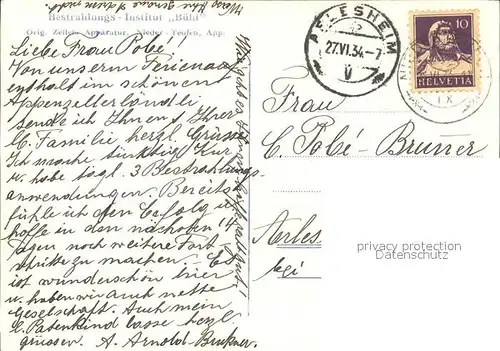 Bestrahlungs - Institut „Bühl“
Orig. Zeileis Apparatur. Nieder-Teufen, App.
Liebe Frau Pobé!
Von unserm Ferienauf
enthalt im schönen
Appenzellerlandli
sende ich Ihnen & Ihrer
lb. Familie herzl. Grüsse.
Ich mache tüchtig Kur
u. habe tägl. 3 Bestrahlungs-
anwendungen. Bereits
fühle ich den Erfolg u
hoffe in den nächsten 14
Tagen noch weitere Fort
schritte zu machen. Es
ist wunderschön hier
u. haben wir auch nette
Gesellschaft. Auch mein
lb. Patenkind lasse herzl.
grüssen. A. Arnold-Brukner.
ARLESHEIM
27.VI.34.-7
V
10
HELVETIA
IX
Frau
C. Pobé-Bruner
Arles
privacy protection
Datenschutz